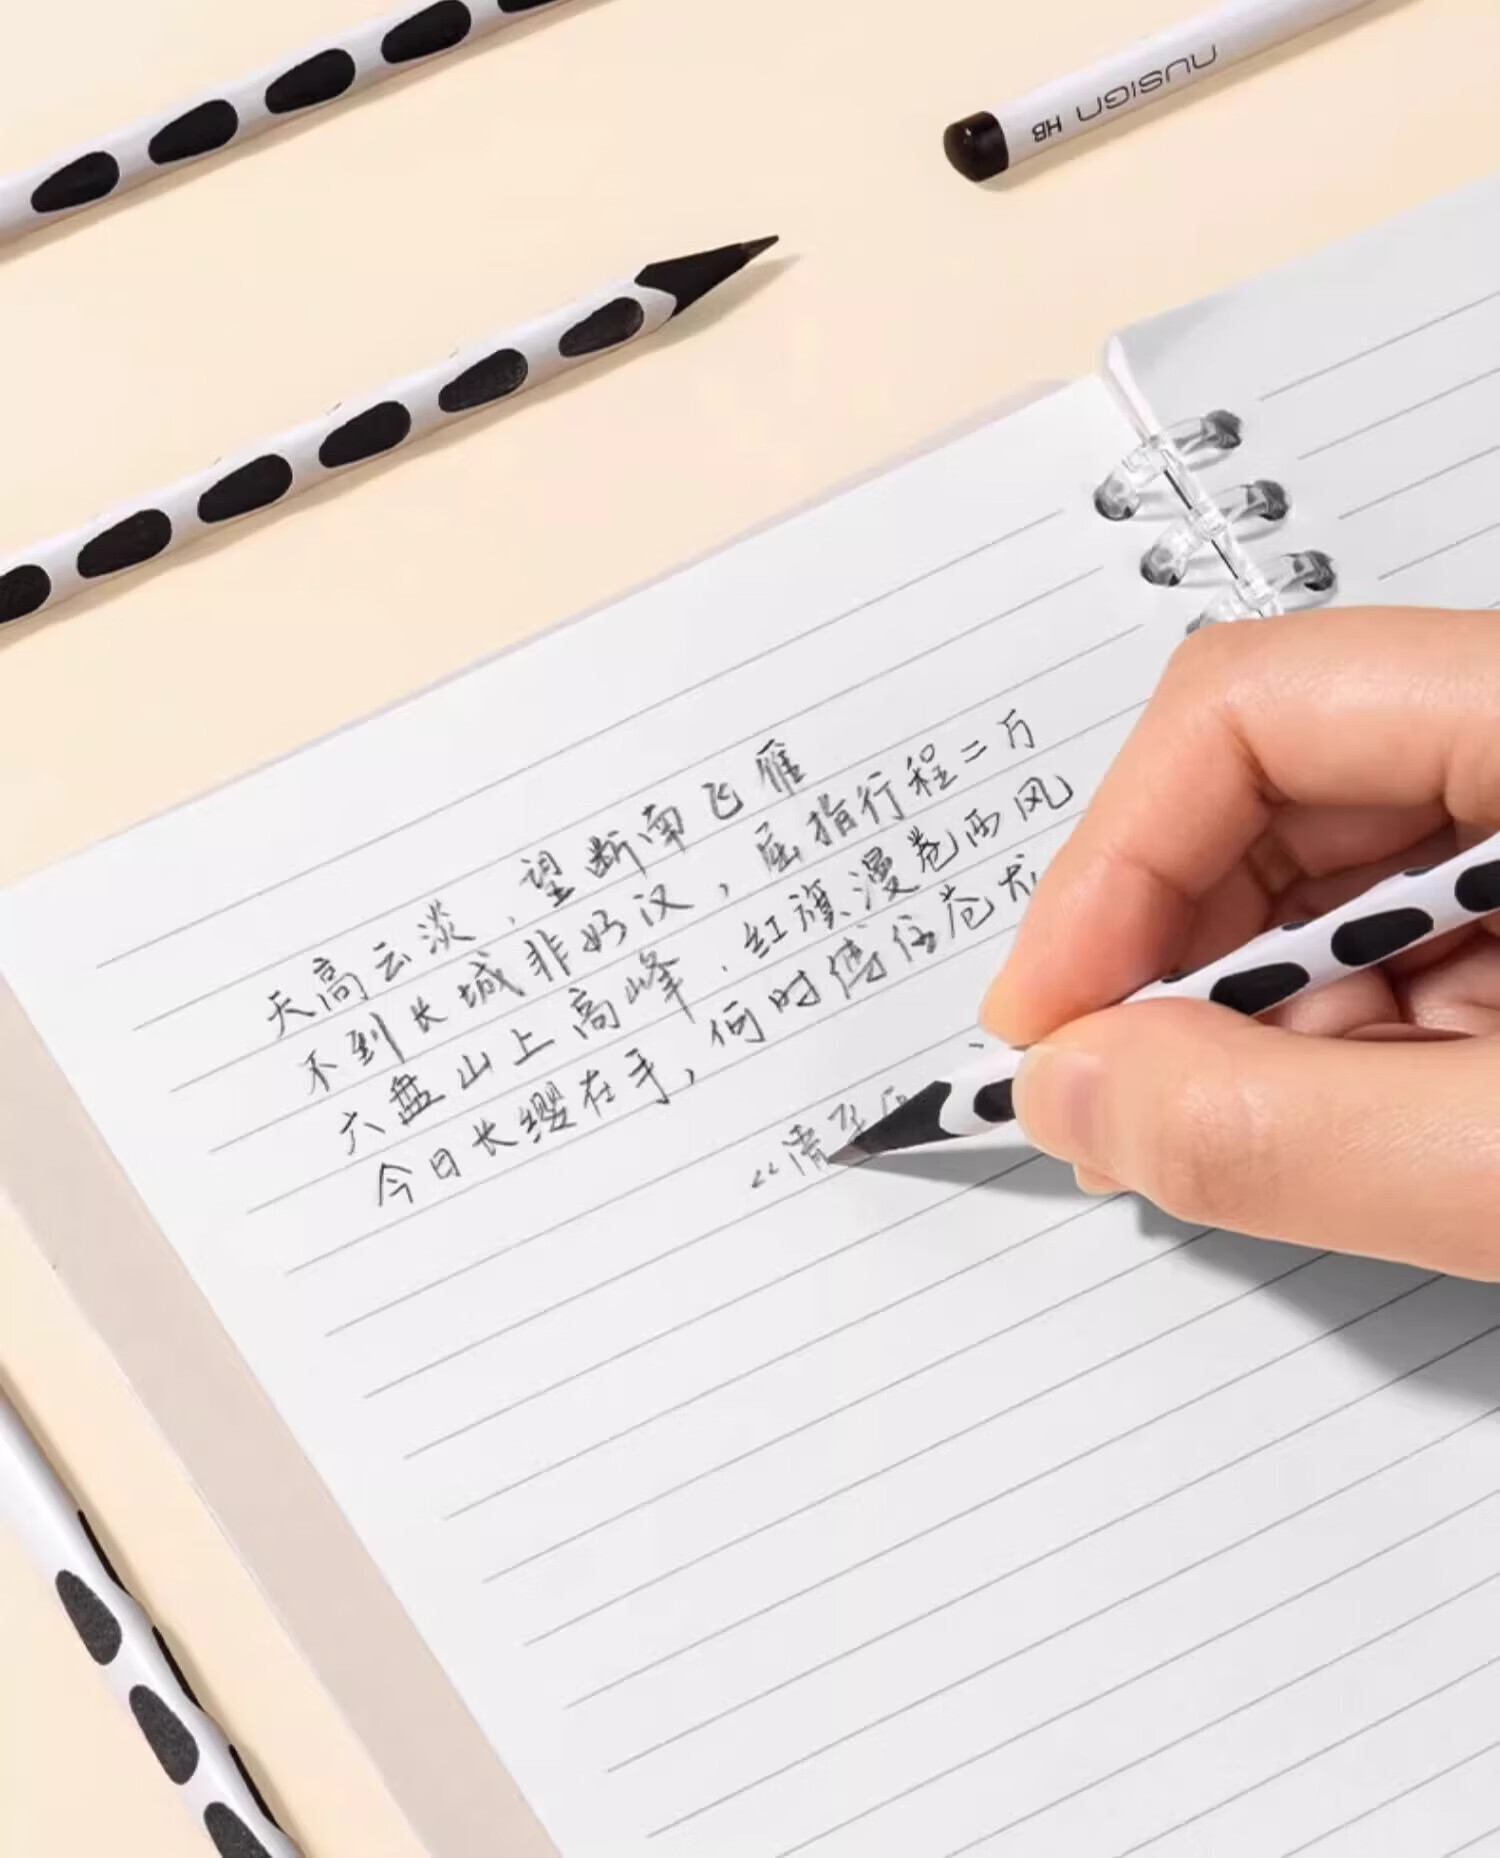 nusign HB
天高云淡，望断南飞雁
不到长城非好汉，屈指行程二万
六盘山上高峰，红旗漫卷西风
今日长缨在手，何时缚住苍龙
《清平